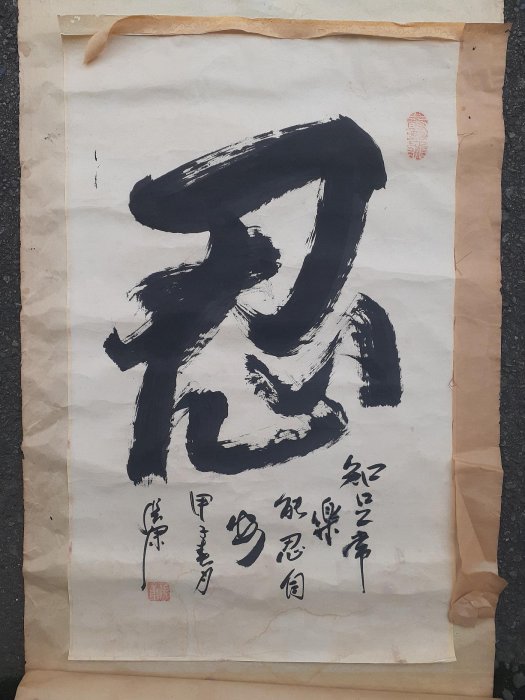 忍
知足常
樂
能忍自
安
甲子春月